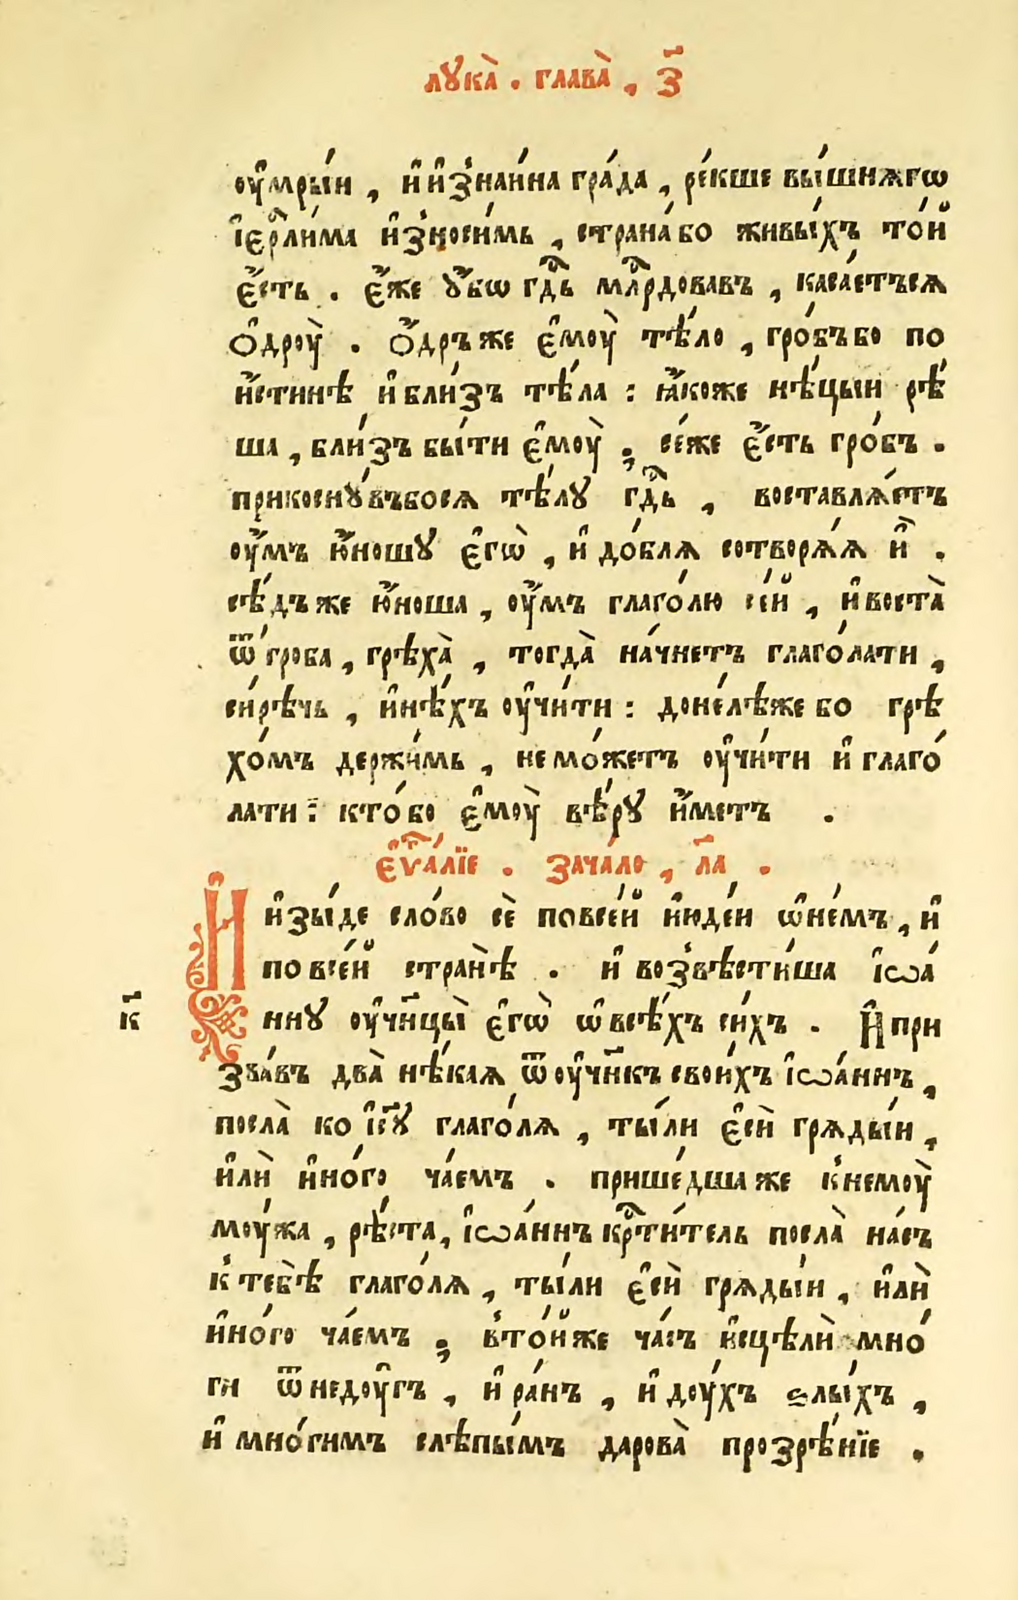 лꙋка̀ . глава̀ , з҃
оу҆мры́и , и҆ и҆зꙿнаи́на гра́да , ре́кше вы́шнѧгѡ
і҆ерⷭ҇ли́ма и҆зꙿноси́мь , страна́ бо живы́хъ то́й
є҆́сть . є҆́же ᲂу҆́бѡ гдⷭ҇ь млⷭ҇рдовавъ , каса́етъсѧ
ѻ҆дроу̀ . ѻ҆́дръ же є҆моу̀ тѣ́ло , гро́бъ бо по
и҆́стинѣ и҆ бли́зъ тѣ́ла : ꙗ҆́коже нѣ́цыи рѣ́
ша , бли́зъ бы́ти є҆моу̀ ; се́же є҆́сть гро́бъ .
прикоснꙋ́въбосѧ тѣ́лꙋ гдⷭ҇ь , воставлѧ́етъ
оу҆́мъ ю҆́ношꙋ є҆гѡ̀ , и҆ до́блѧ сотворѧ́ѧ и҆̀ .
сѣ́дъ же ю҆́ноша , оу҆́мъ глаго́лю се́й , и҆ воста̀
ѿ гро́ба , грѣха̀ , тогда̀ на́чнетъ глаго́лати ,
си́рѣчь , и҆нѣ́хъ оу҆чи́ти : доне́лѣже бо грѣ
хо́мъ держи́мь , не мо́жетъ оу҆чи́ти и҆ глаго́
лати : кто́ бо є҆моу̀ вѣ́рꙋ и҆́метъ .
є҆ѵⷢ҇а́лїе . зача́ло , л҃а .
И҆ и҆зы́де сло́во сѐ по все́й и҆юде́и ѡ҆ не́мъ , и҆
по все́й странѣ̀ . и҆ возꙿвѣсти́ша і҆ѡа́
ннꙋ оу҆чн҃цы̀ є҆гѡ̀ ѡ҆ всѣ́хъ си́хъ . И҆ при
к҃
зва́въ два̀ нѣ́каѧ ѿ оу҆чн҃къ свои́хъ і҆ѡа́ннъ ,
посла̀ ко і҆с҃ꙋ глаго́лѧ , ты́ ли є҆сѝ грѧды́и ,
и҆лѝ и҆но́го ча́емъ . прише́дша же кꙿнемоу̀
моу́жа , рѣ́ста , і҆ѡа́ннъ крⷭ҇ти́тель посла̀ на́съ
кꙿ тебѣ̀ глаго́лѧ , ты́ ли є҆сѝ грѧды́и , и҆лѝ
и҆но́го ча́емъ ; вꙿто́йже ча́съ и҆сцѣлѝ мно́
ги ѿ недоу҆́гъ , и҆ ра́нъ , и҆ доу́хъ ѕлы́хъ ,
и҆ мно́гимъ слѣпы́мъ дарова̀ прозрѣ́нїе .